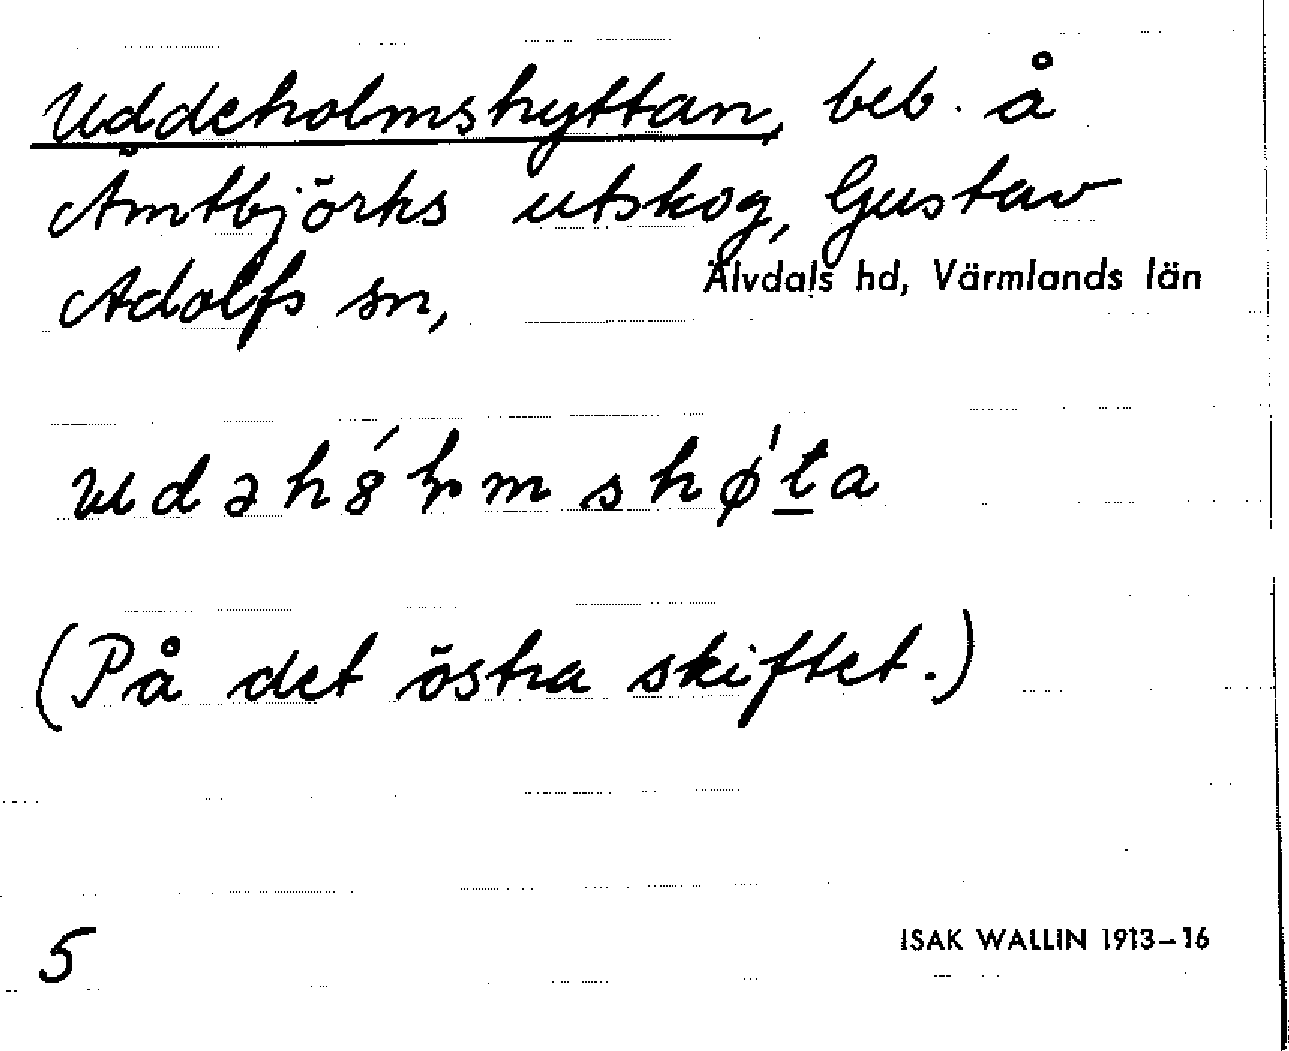 Uddeholmshyttan, beb. å
Ämtbjörks utskog, Gustav
Adolfs sn, Älvdals hd, Värmlands län
(På det östra skiftet.)
5
ISAK WALLIN 1913–16